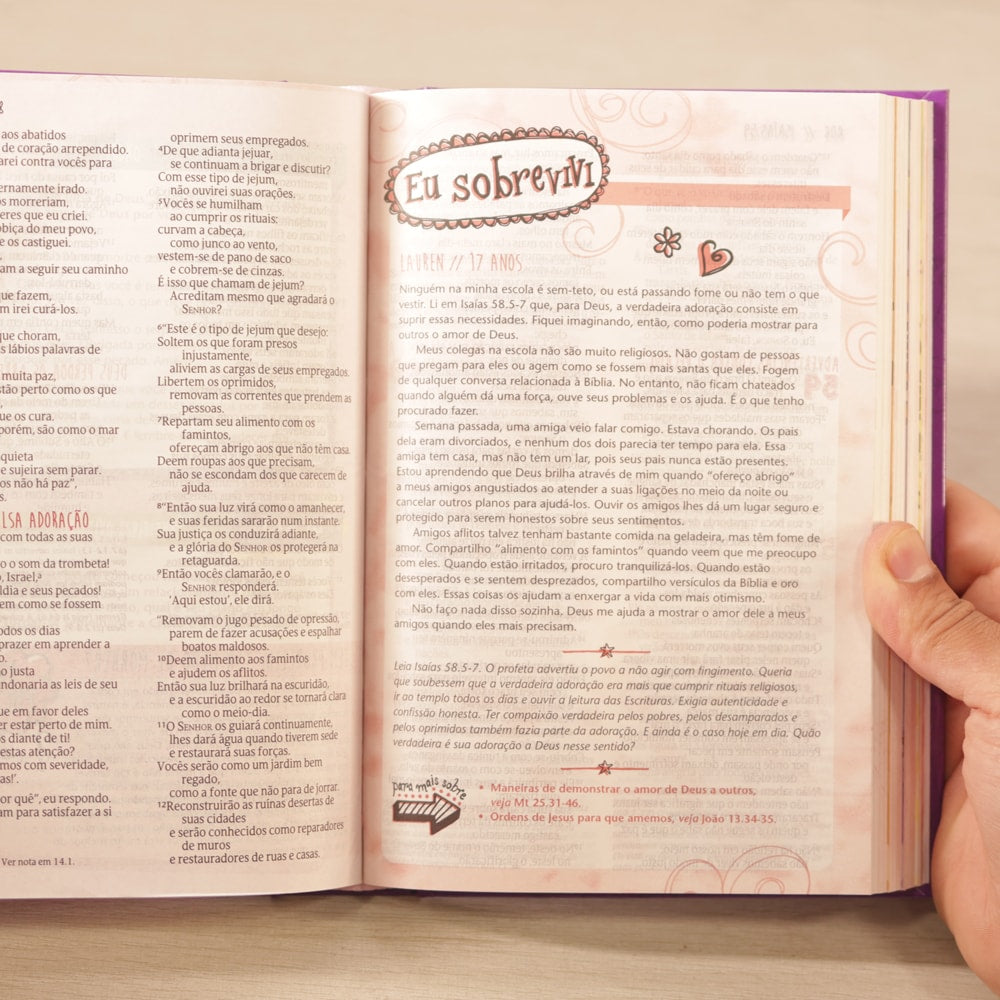 aos abatidos
de coração arrependido.
arei contra vocês para
ernamente irado.
s morreriam,
eres que eu criei.
obiça do meu povo,
e os castiguei.
am a seguir seu caminho
que fazem,
m irei curá-los.
que choram,
s lábios palavras de
muita paz,
stão perto como os que
ue os cura.
porém, são como o mar
quieta
e sujeira sem parar.
os não há paz”,
s.
LSA ADORAÇÃO
com todas as suas
o o som da trombeta!
o, Israel,ᵃ
ldia e seus pecados!
em como se fossem
odos os dias
prazer em aprender a
o.
o justa
ndonaria as leis de seu
que em favor deles
er estar perto de mim.
s diante de ti!
estas atenção?
mos com severidade,
as!’.
or quê”, eu respondo.
am para satisfazer a si
Ver nota em 14.1.
oprimem seus empregados.
⁴De que adianta jejuar,
se continuam a brigar e discutir?
Com esse tipo de jejum,
não ouvirei suas orações.
⁵Vocês se humilham
ao cumprir os rituais:
curvam a cabeça,
como junco ao vento,
vestem-se de pano de saco
e cobrem-se de cinzas.
É isso que chamam de jejum?
Acreditam mesmo que agradará o
SENHOR?
⁶“Este é o tipo de jejum que desejo:
Soltem os que foram presos
injustamente,
aliviem as cargas de seus empregados.
Libertem os oprimidos,
removam as correntes que prendem as
pessoas.
⁷Repartam seu alimento com os
famintos,
ofereçam abrigo aos que não têm casa.
Deem roupas aos que precisam,
não se escondam dos que carecem de
ajuda.
⁸“Então sua luz virá como o amanhecer,
e suas feridas sararão num instante.
Sua justiça os conduzirá adiante,
e a glória do SENHOR os protegerá na
retaguarda.
⁹Então vocês clamarão, e o
SENHOR responderá.
‘Aqui estou’, ele dirá.
“Removam o jugo pesado de opressão,
parem de fazer acusações e espalhar
boatos maldosos.
¹⁰Deem alimento aos famintos
e ajudem os aflitos.
Então sua luz brilhará na escuridão,
e a escuridão ao redor se tornará clara
como o meio-dia.
¹¹O SENHOR os guiará continuamente,
lhes dará água quando tiverem sede
e restaurará suas forças.
Vocês serão como um jardim bem
regado,
como a fonte que não para de jorrar.
¹²Reconstruirão as ruínas desertas de
suas cidades
e serão conhecidos como reparadores
de muros
e restauradores de ruas e casas.
Eu sobrevivi
LAUREN // 17 ANOS
Ninguém na minha escola é sem-teto, ou está passando fome ou não tem o que
vestir. Li em Isaías 58.5-7 que, para Deus, a verdadeira adoração consiste em
suprir essas necessidades. Fiquei imaginando, então, como poderia mostrar para
outros o amor de Deus.
Meus colegas na escola não são muito religiosos. Não gostam de pessoas
que pregam para eles ou agem como se fossem mais santas que eles. Fogem
de qualquer conversa relacionada à Bíblia. No entanto, não ficam chateados
quando alguém dá uma força, ouve seus problemas e os ajuda. É o que tenho
procurado fazer.
Semana passada, uma amiga veio falar comigo. Estava chorando. Os pais
dela eram divorciados, e nenhum dos dois parecia ter tempo para ela. Essa
amiga tem casa, mas não tem um lar, pois seus pais nunca estão presentes.
Estou aprendendo que Deus brilha através de mim quando “ofereço abrigo”
a meus amigos angustiados ao atender a suas ligações no meio da noite ou
cancelar outros planos para ajudá-los. Ouvir os amigos lhes dá um lugar seguro e
protegido para serem honestos sobre seus sentimentos.
Amigos aflitos talvez tenham bastante comida na geladeira, mas têm fome de
amor. Compartilho “alimento com os famintos” quando veem que me preocupo
com eles. Quando estão irritados, procuro tranquilizá-los. Quando estão
desesperados e se sentem desprezados, compartilho versículos da Bíblia e oro
com eles. Essas coisas os ajudam a enxergar a vida com mais otimismo.
Não faço nada disso sozinha. Deus me ajuda a mostrar o amor dele a meus
amigos quando eles mais precisam.
Leia Isaías 58.5-7. O profeta advertiu o povo a não agir com fingimento. Queria
que soubessem que a verdadeira adoração era mais que cumprir rituais religiosos,
ir ao templo todos os dias e ouvir a leitura das Escrituras. Exigia autenticidade e
confissão honesta. Ter compaixão verdadeira pelos pobres, pelos desamparados e
pelos oprimidos também fazia parte da adoração. E ainda é o caso hoje em dia. Quão
verdadeira é sua adoração a Deus nesse sentido?
para mais sobre
• Maneiras de demonstrar o amor de Deus a outros,
veja Mt 25.31-46.
• Ordens de Jesus para que amemos, veja João 13.34-35.